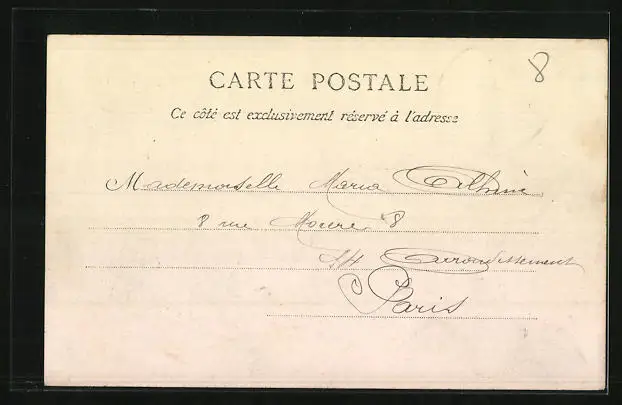 8
CARTE POSTALE
Ce côté est exclusivement réservé à l'adresse
Mademoiselle Maria
8 rue 8
14 Arrondissement
Paris